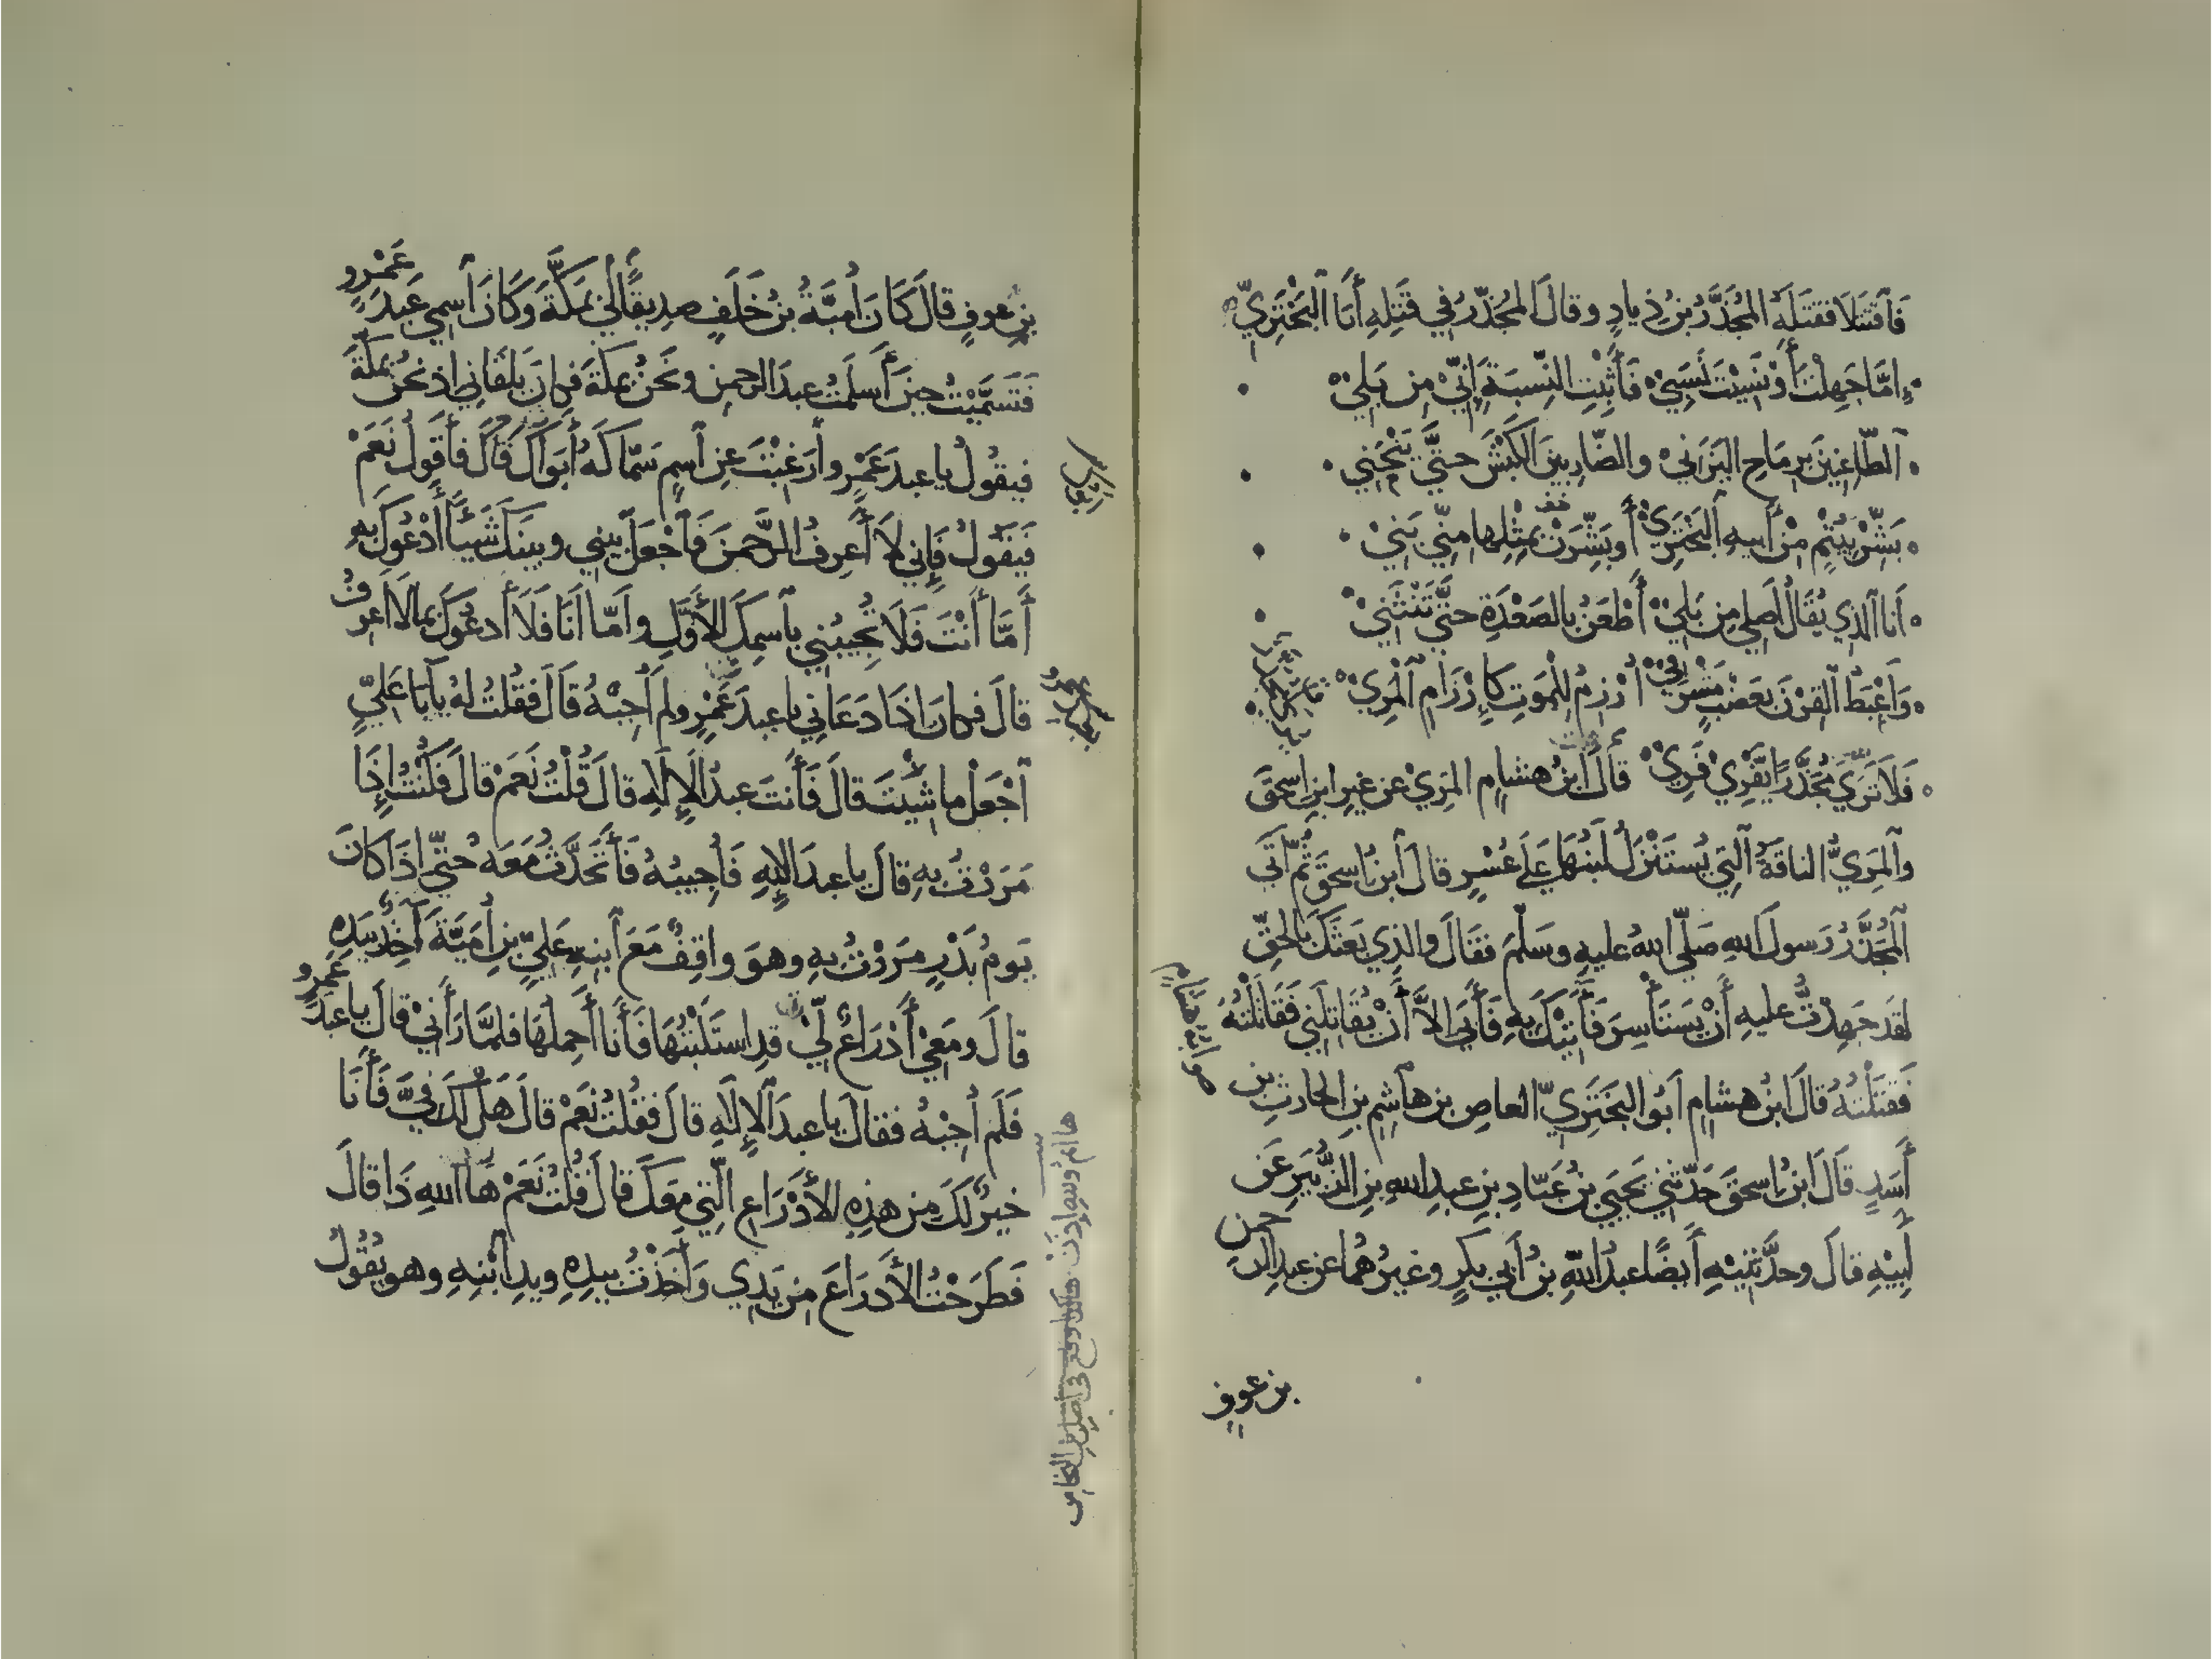 فَٱقْتَتَلَا فقتَلَهُ المُجَذَّرُ بنُ ذِيادٍ وقالَ المُجَذَّرُ في قَتْلِهِ أَبَا ٱلبَخْتَرِيِّ
إِمَّا جَهِلْتَ أَوْ نَسِيْتَ نَسَبِيْ فَأَثْبِتِ النِّسبَةَ إِنِّي مِن بَلِيْ
ٱلطَّاعِنِينَ بِرِمَاحِ اليَزَنِيْ والضَّارِبِينَ الكَبْشَ حتَّى يَنْحَنِي
بَشِّرْ بِيُتْمٍ مَنْ أَبيهِ ٱلبَخْتَرِيْ أَو بَشِّرَنْ بمِثْلِها مِنِّي بَنِيْ
أَنا ٱلذي يُقَالُ أَصلِي مِن بَلِيْ أَطْعَنُ بالصَعْدَةِ حتَّى تَنْثَنِيْ
وَأَعْبِطُ ٱلقِرْنَ بعَضْبٍ مَشْرَفِيْ أُرْزِمُ للْمَوتِ كَإِرْزَامِ ٱلْمَرِيْ
فَلَا تَرَى مُجَذَّرًا يَفْرِيْ فَرِيْ قالَ ابنُ هشامٍ المَرِيْ عن غيرِ ابنِ إسحقَ
وٱلمَرِيُّ الناقَةُ ٱلتي يُستَنْزَلُ لَبَنُهَا عَلَى عُسْرٍ قالَ ٱبنُ إسحقَ ثُمَّ أَتَى
ٱلمُجَذَّرُ رَسولَ اللهِ صَلّى اللهُ عليهِ وسَلّمَ فقَالَ والذِي بَعَثَكَ بالحَقِّ
لقد جَهِدْتُ عليهِ أَنْ يَسْتَأْسِرَ فَأَتِيَكَ بِهِ فَأَبَى إلَّا أَنْ يُقَاتِلَنِي فَقَاتَلْتُهُ
فَقَتَلْتُهُ قالَ ابنُ هشامٍ أَبُو البَخْتَرِيِّ العاصِ بن هاشِمِ بنِ الحارثِ بن
أَسَدٍ قَالَ ابنُ إسحقَ حَدَّثَنِي يَحيَى بنُ عَبّادِ بنِ عبدِ اللهِ بنِ الزُّبَيرِ عَن
أَبِيْهِ قالَ وحدَّثَنِيْهِ أَيضًا عبدُ اللهِ بنُ أَبي بَكرٍ وغيرُهُمَا عن عبدِ الرحمن
بن عوفٍ
بنِ عوفٍ قالَ كَانَ أُميَّةُ بنُ خَلَفٍ صدِيقًا لِي بمكَّةَ وَكَانَ ٱسمِي عَبدَ عَمْرٍو
فَتَسَمَّيْتُ حِينَ أَسلَمْتُ عبدَ الرحمنِ ونحنُ بمكةَ فكانَ يَلقَانِي إذ نحنُ بمكّةَ
فيقُولُ يا عبدَ عَمْرٍو أَرَغِبْتَ عنِ ٱسمٍ سَمّاكَهُ أَبَوَاكَ قالَ فأَقُولُ نَعَمْ
فَيَقُولُ فَإِني لَا أَعرِفُ الرَّحمنَ فَٱجْعَلْ بيني وبينَكَ شَيْئًا أَدْعُوكَ بهِ
أَمَّا أَنْتَ فَلَا تُجِيبُنِي بٱسمِكَ الأَوَّلِ وأَمّا أَنَا فَلَا أَدعُوكَ بما لا أَعرِفُ
قالَ فكانَ إذا دَعَانِي يا عبدَ عَمْرٍو لم أُجِبْهُ قالَ فَقُلتُ لهُ يا أَبَا عَلِيٍّ
ٱجْعَلْ ما شِئْتَ قالَ فَأَنتَ عبدُ الإِلَهِ قالَ قُلْتُ نَعَمْ قالَ فَكُنْتُ إِذَا
مَرَرْتُ بهِ قالَ يا عبدَ الإلهِ فَأُجِيبُهُ فَأَتَحَدَّثُ مَعَهُ حتّى إِذَا كانَ
يَومُ بَدْرٍ مَرَرْتُ بهِ وهوَ واقِفٌ مَعَ ٱبنِهِ عَلِيِّ بنِ أُمَيّةَ آخِذٌ بيَدِهِ
قالَ ومَعِيْ أَدْرَاعٌ لِيْ قدِ استَلَبْتُهَا فَأَنا أَحمِلُهَا فلمَّا رَآنيْ قالَ يا عبدَ عَمرٍو
فَلَم أُجِبْهُ فقالَ يا عبدَ الإِلَهِ قالَ فقُلتُ نَعَمْ قالَ هَل لكَ فيَّ فَأَنَا
خيرٌ لكَ مِن هذِهِ الأَدْرَاعِ الَّتِي معَكَ قالَ قُلتُ نَعَمْ هَا اللهِ ذَا قالَ
فَطَرَحْتُ الأَدرَاعَ مِن يَدِي وَأَخَذْتُ بيدِهِ ويدِ ٱبْنِهِ وهو يقُولُ